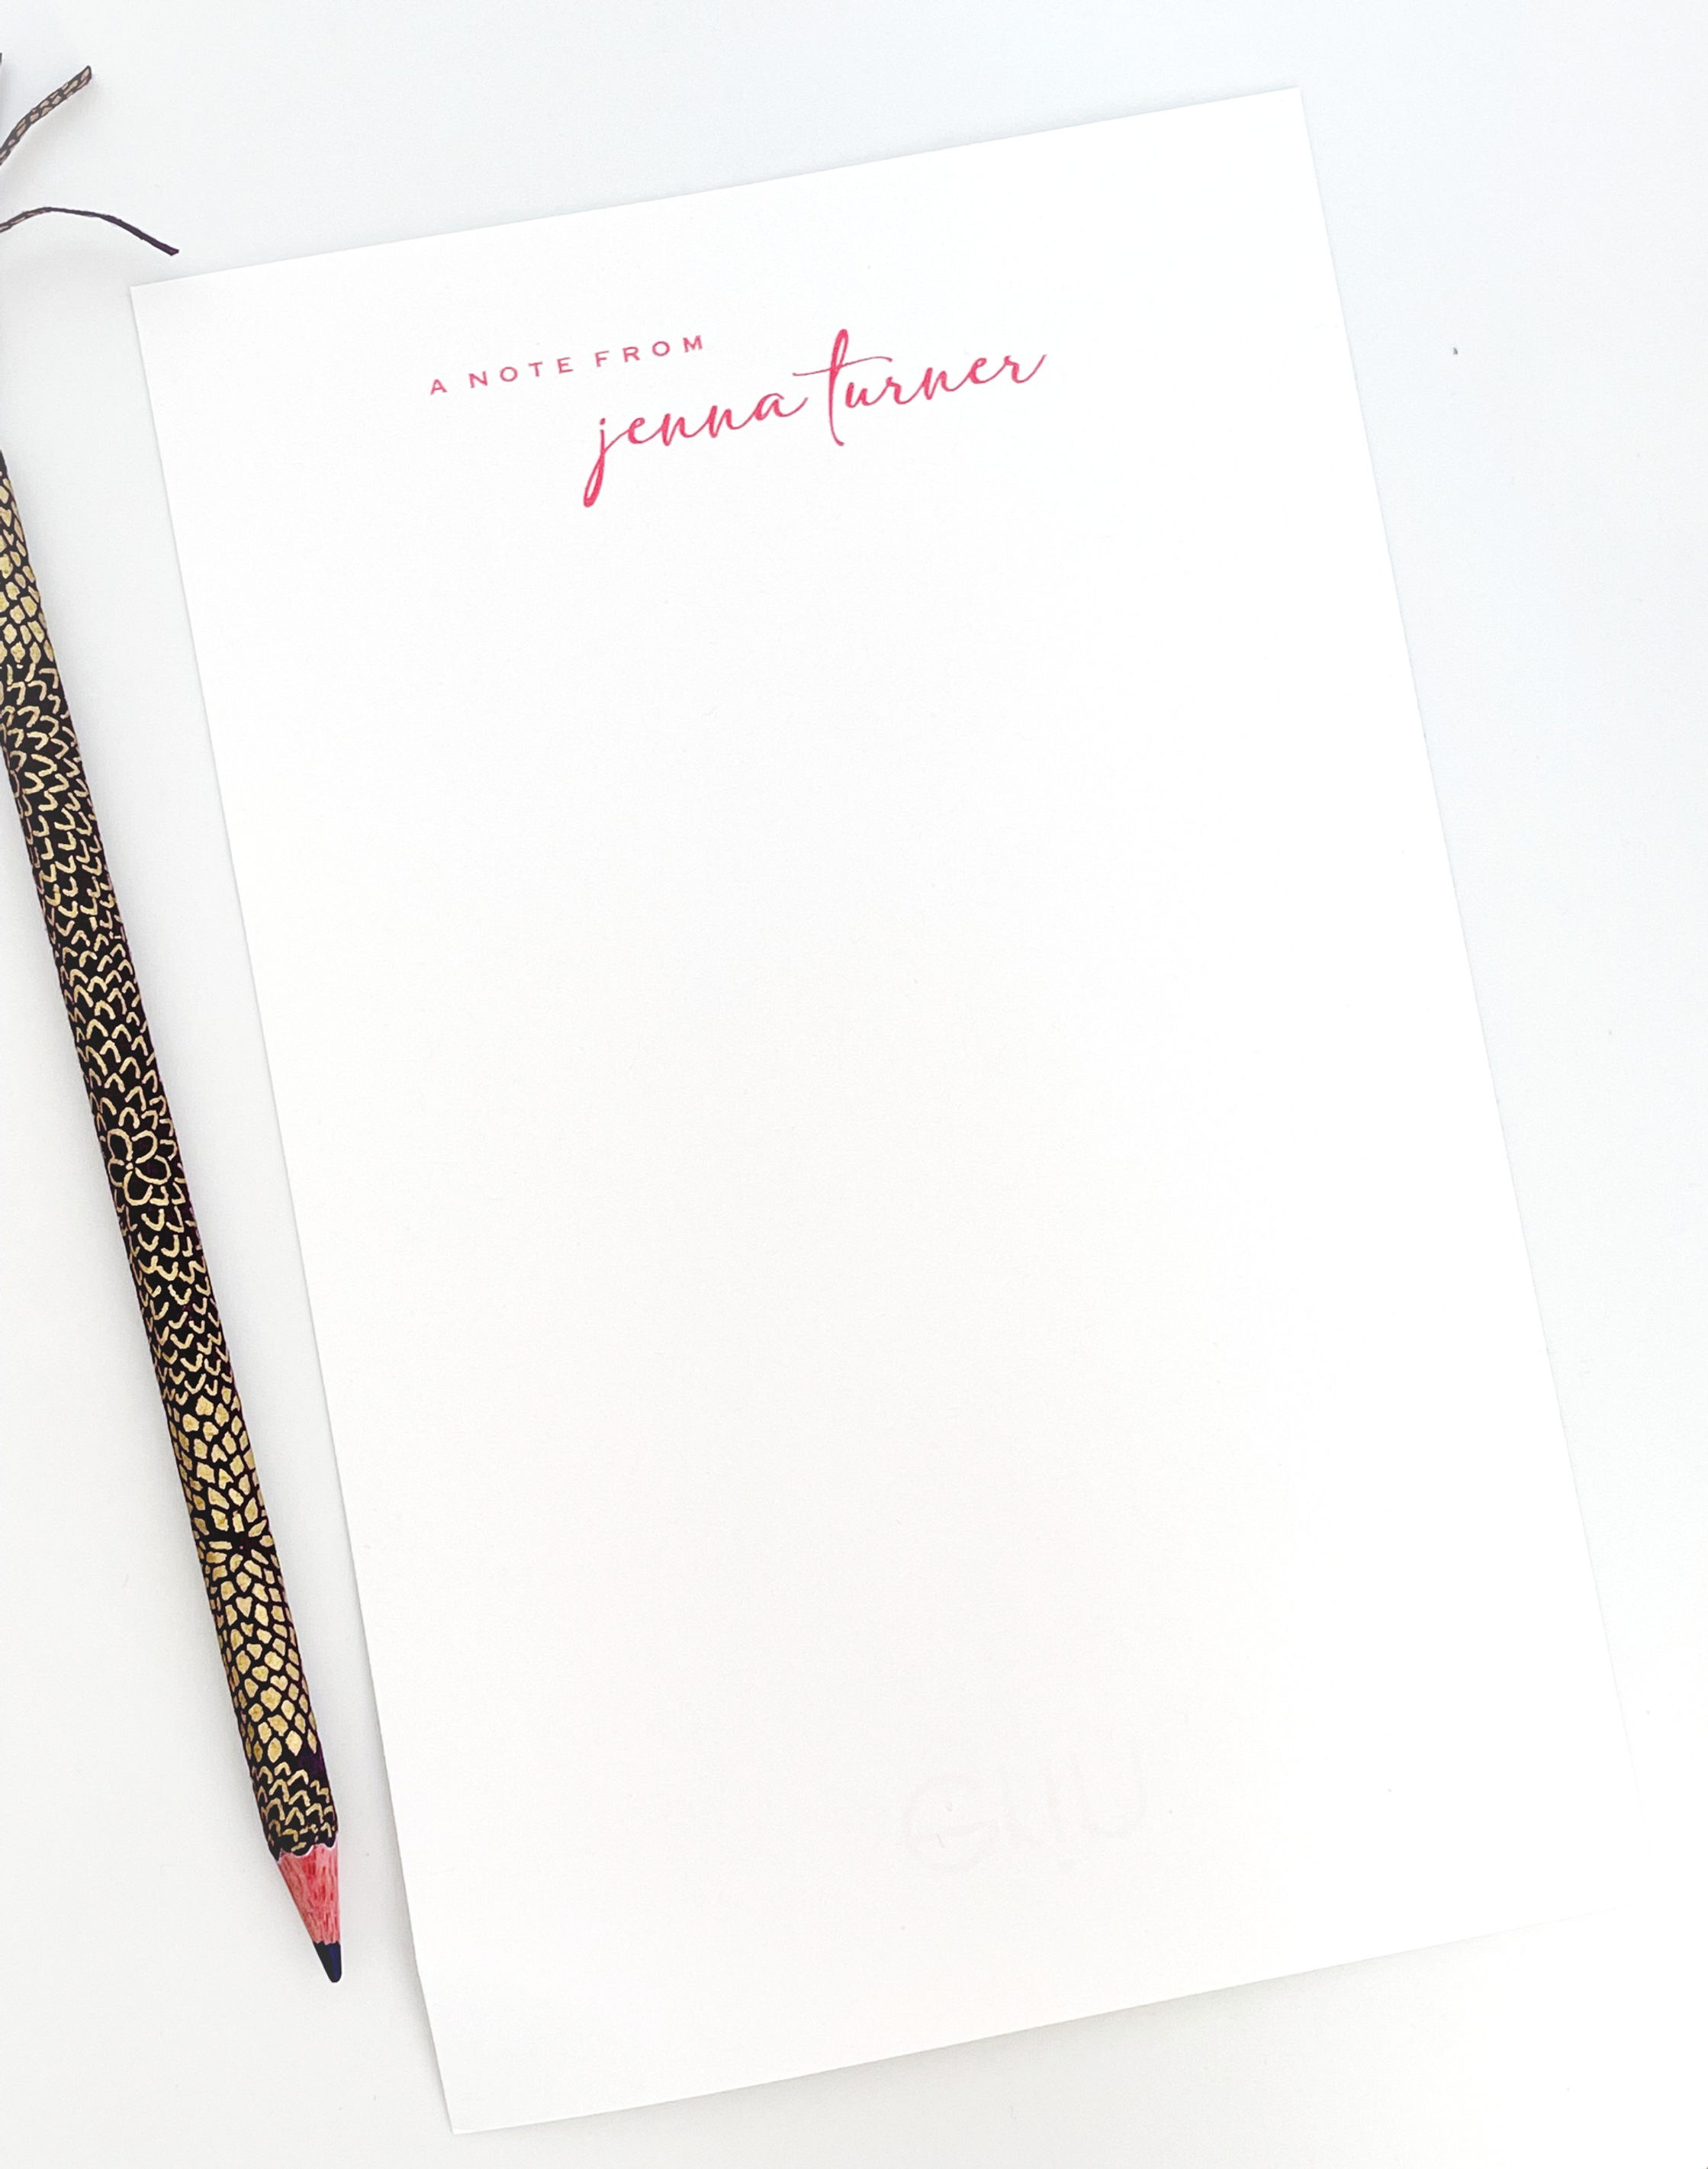 A NOTE FROM
jenna turner